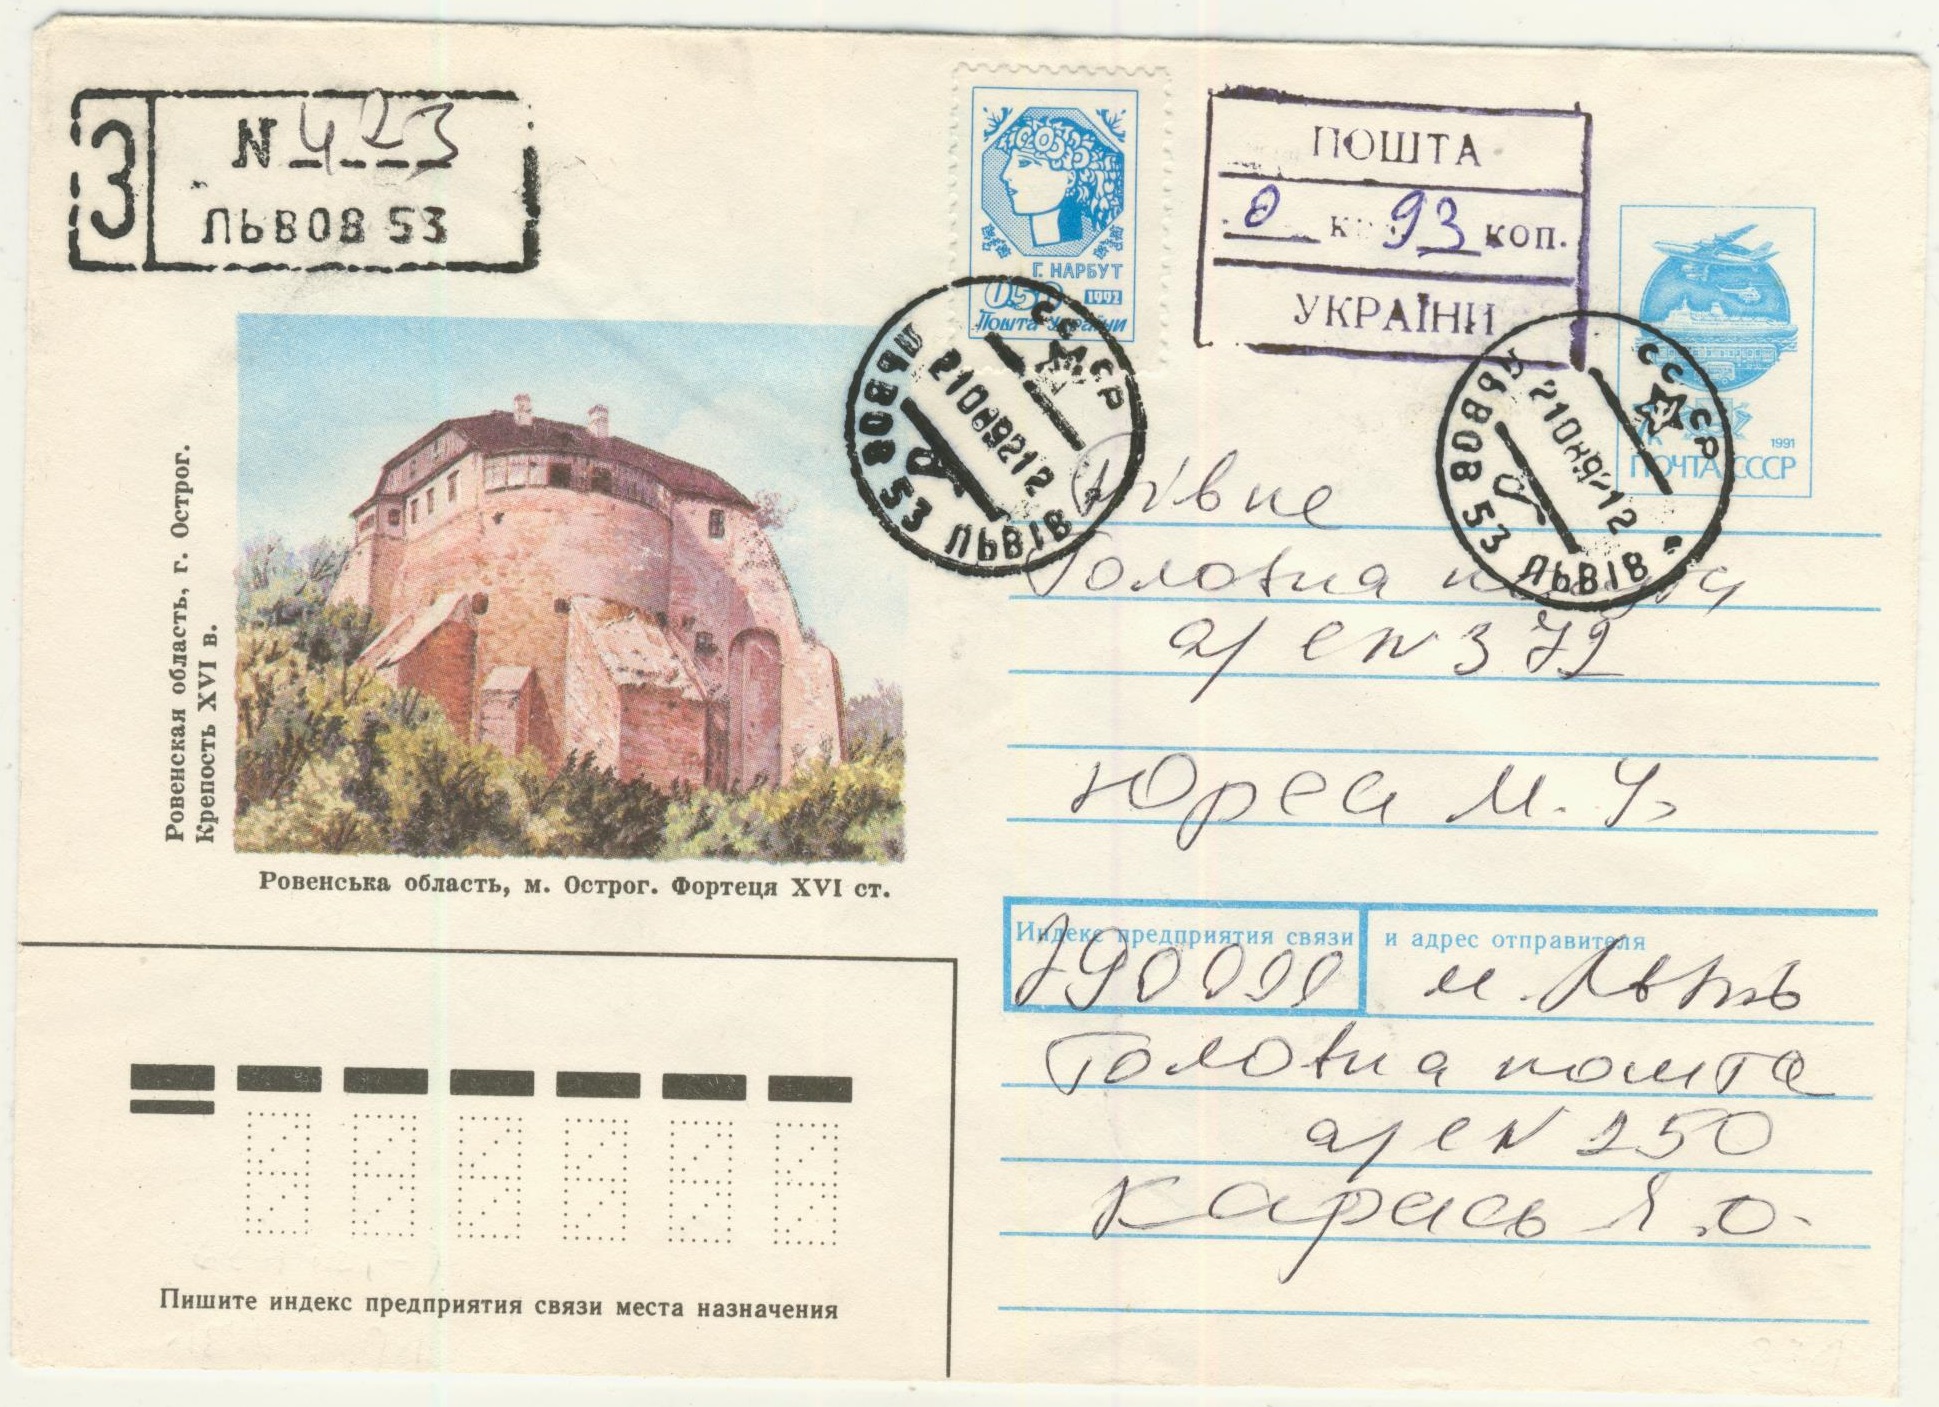 З
N 423
ЛЬВОВ 53
Г. НАРБУТ
0.50 1992
Пошта України
ПОШТА
0 к 93 коп.
УКРАЇНИ
1991
ПОЧТА СССР
СССР
ЛЬВОВ 53 ЛЬВІВ
21089212
СССР
ЛЬВОВ 53 ЛЬВІВ
Ровенская область, г. Острог.
Крепость XVI в.
Ровенська область, м. Острог. Фортеця XVI ст.
Рівне
Головна пошта
а/с N 372
М.
Индекс предприятия связи и адрес отправителя
м. Львів
Головна пошта
а/с N 250
Карась Я.О.
Пишите индекс предприятия связи места назначения